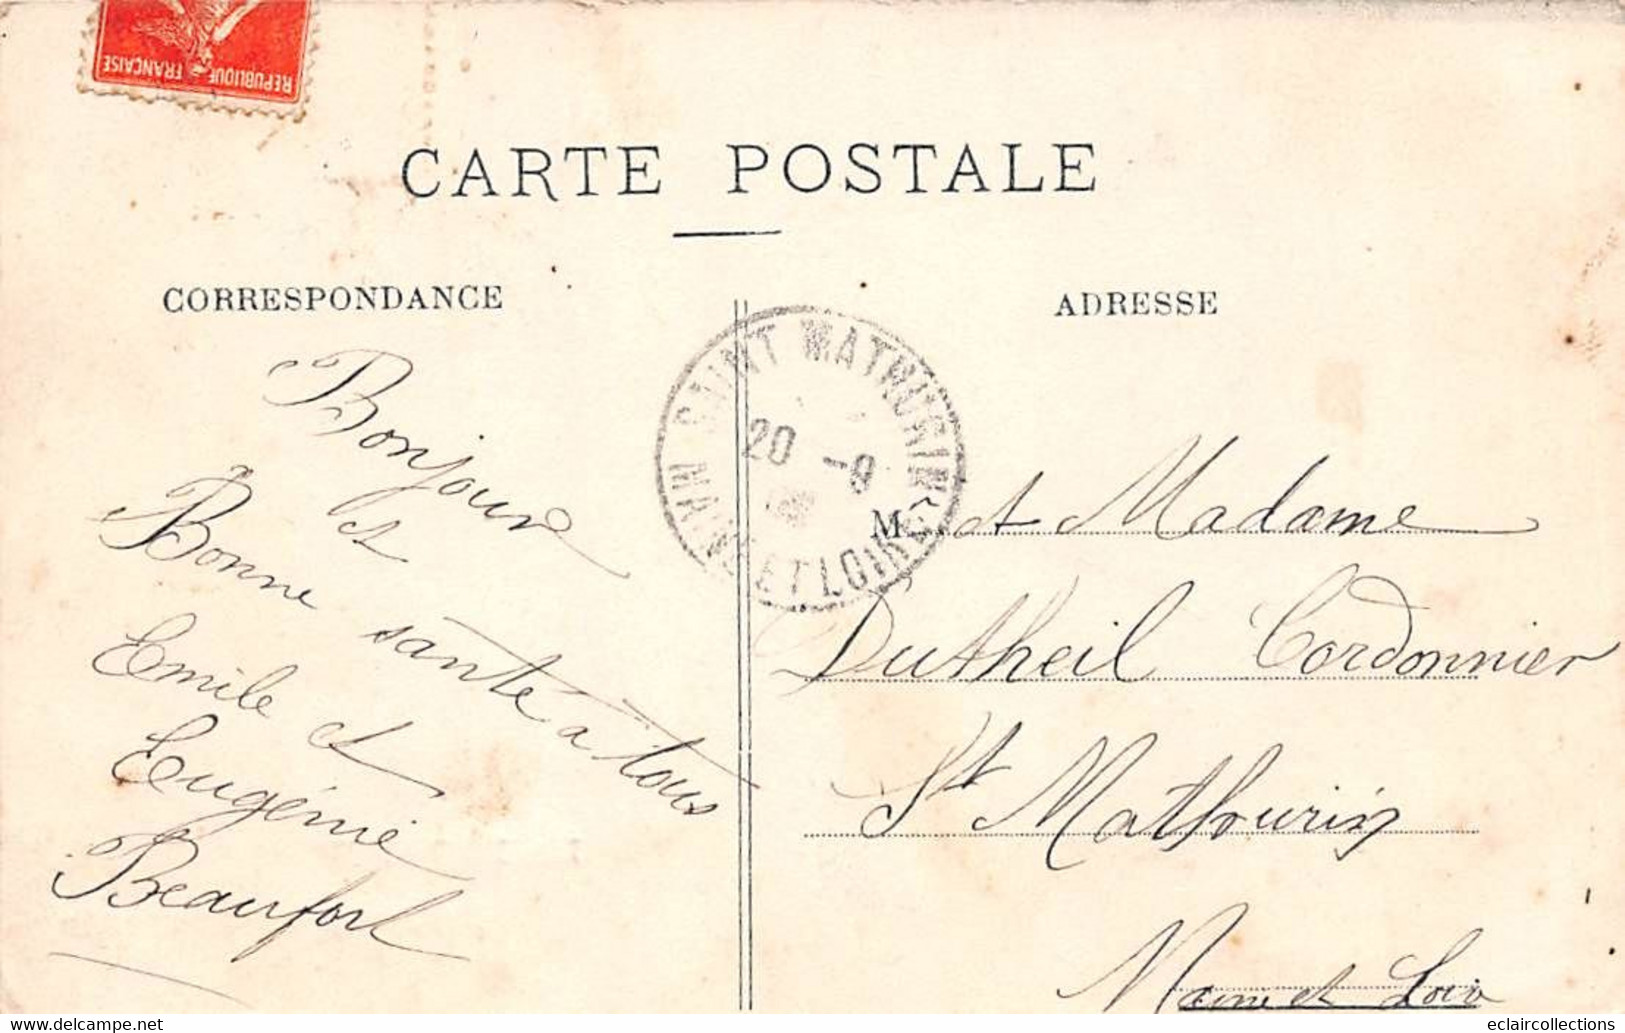 REPUBLIQUE FRANÇAISE
CARTE POSTALE
CORRESPONDANCE
ADRESSE
SAINT MATHURIN
20 -9
MAINE ET LOIRE
Bonjour
et
Bonne santé a tous
Emile et
Eugénie
Beaufort
M. et Madame
Dutheil Cordonnier
St Mathurin
Maine et Loire
www.delcampe.net
eclaircollections